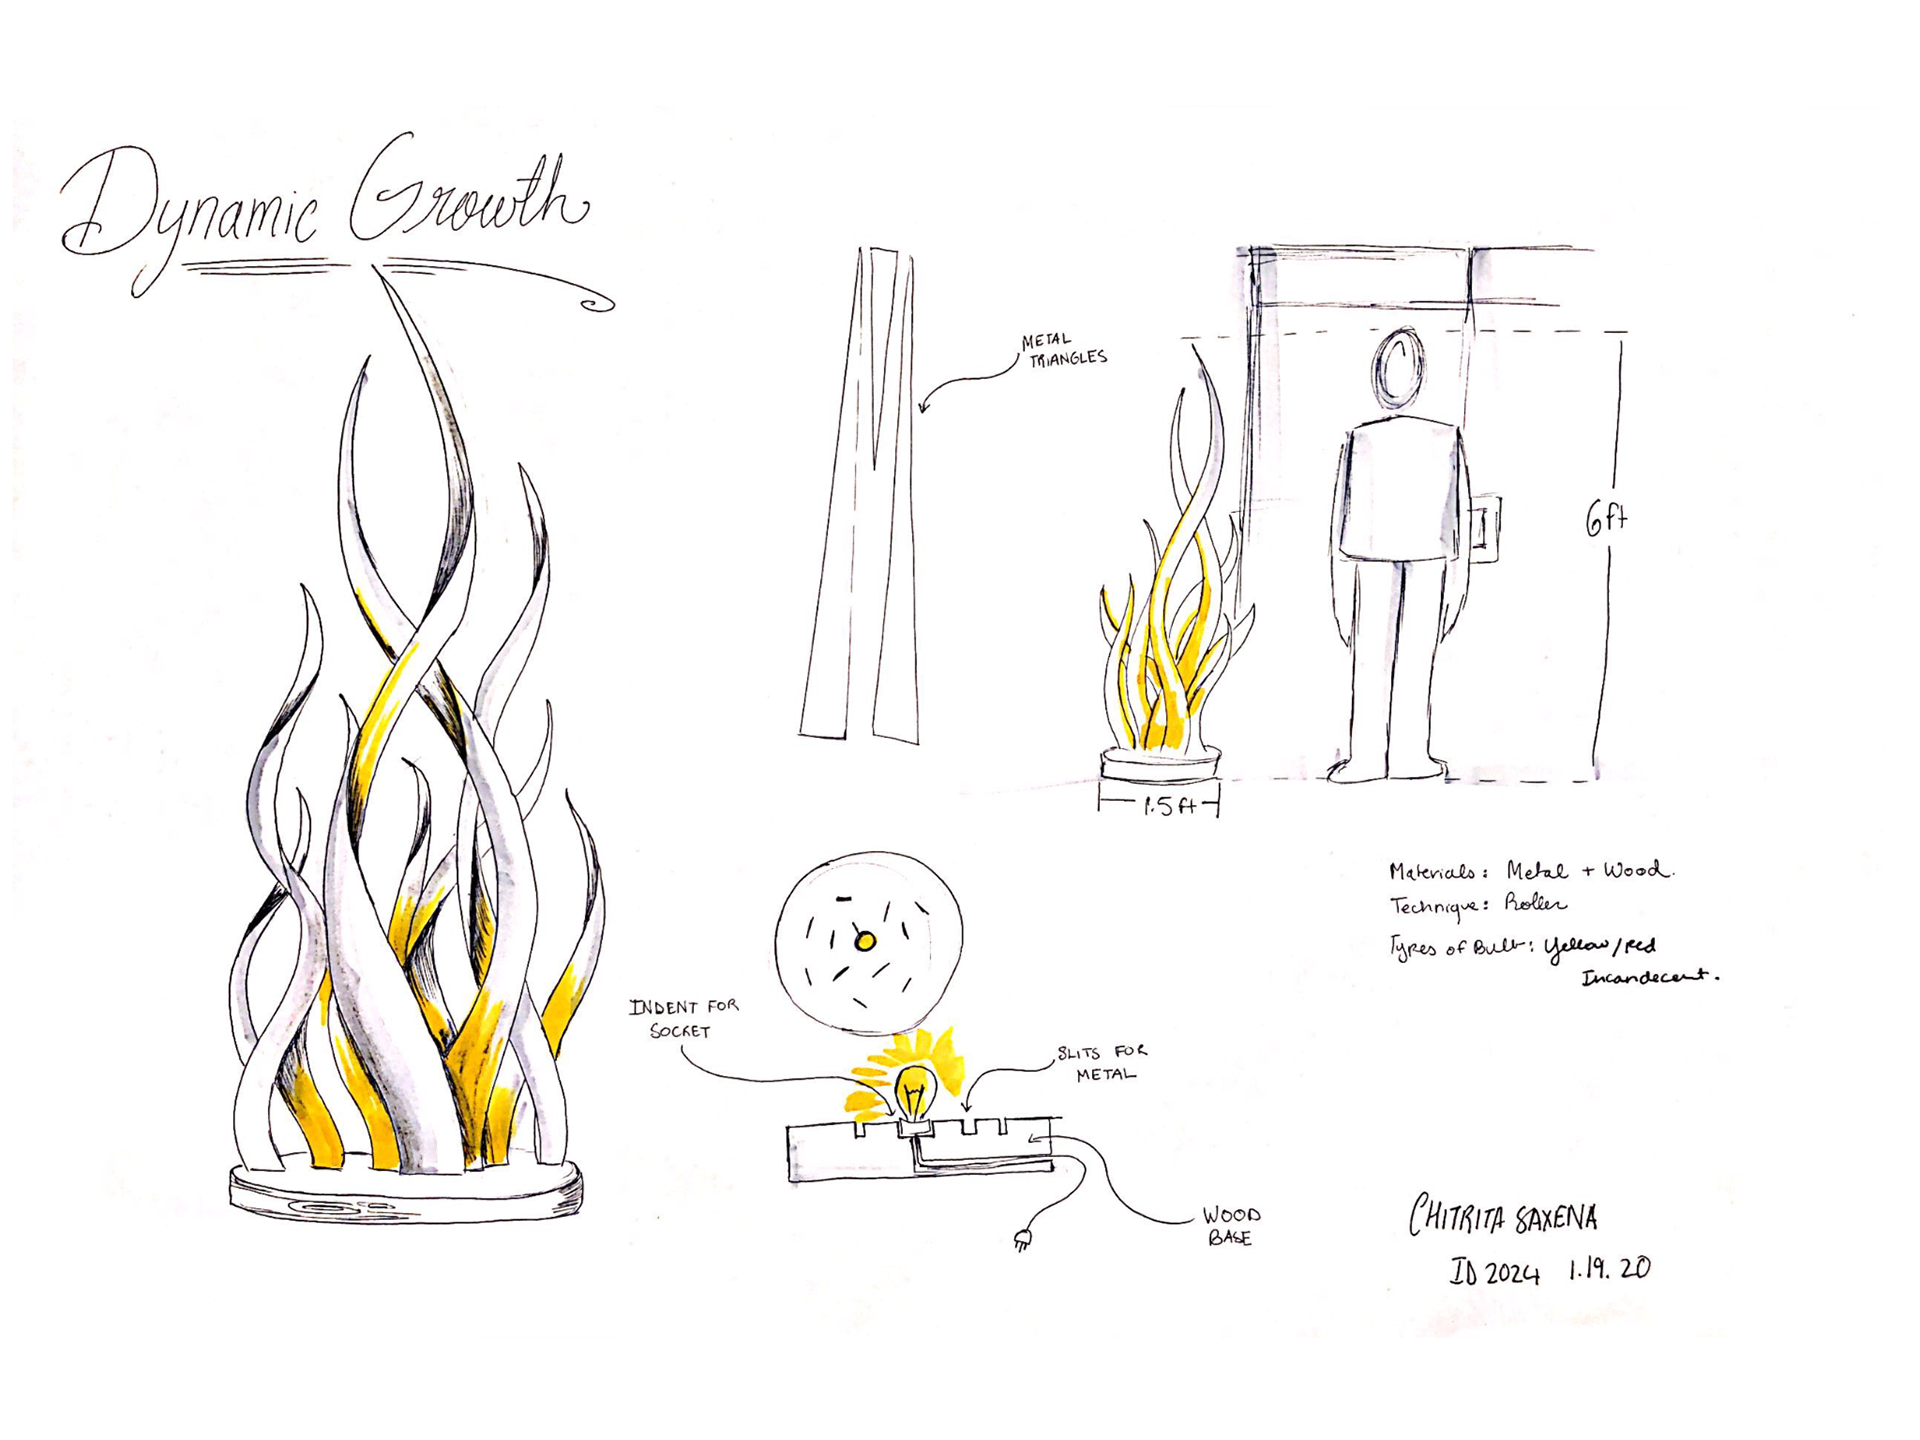 Dynamic Growth
METAL
TRIANGLES
6ft
1.5ft
Materials: Metal + Wood.
Technique: Roller
Types of Bulb: Yellow/red
Incandecent.
INDENT FOR
SOCKET
SLITS FOR
METAL
WOOD
BASE
CHITRITA SAXENA
ID 2024 1.19.20